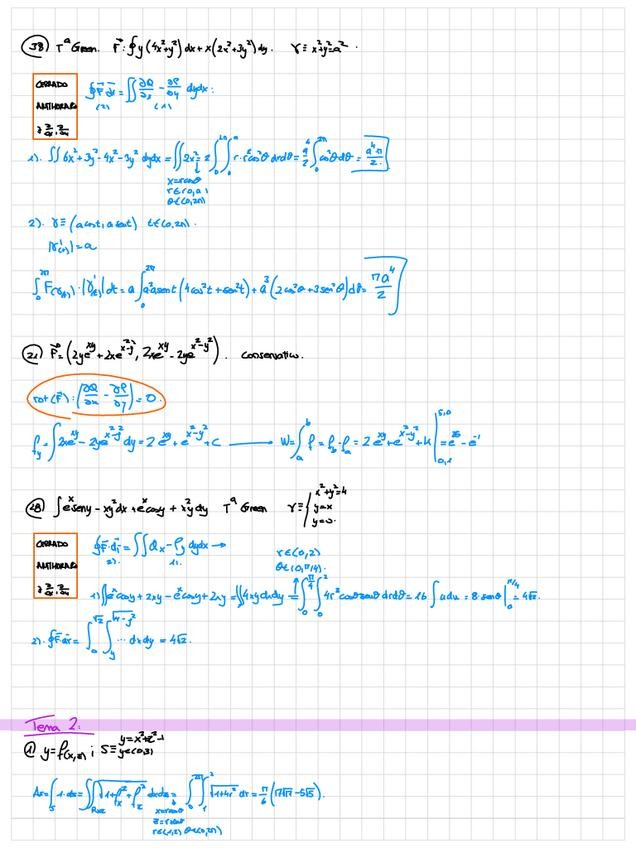 38) Tª Green. F: ∮ y(4x²+y²)dx + x(2x²+3y²)dy. γ ≡ x²+y²=a².
CERRADO
ANTIHORARIO
∃ ∂/∂x, ∂/∂y
∮ F dr = ∬ ∂Q/∂x - ∂P/∂y dydx:
(2) (1)
1). ∬ 6x²+3y²-4x²-3y² dydx = ∬ 2x² = 2 ∫₀^2π ∫₀^a r·r²cos²θ drdθ = a⁴/2 ∫₀^2π cos²θ dθ = a⁴π/2.
x=rcosθ
r∈(0,a)
θ∈(0,2π)
2). γ ≡ (acost, asent) t∈(0,2π).
|γ'(t)| = a
∫₀^2π F(γ(t))·|γ'(t)| dt = a ∫₀^2π a²asent(4cos²t+sen²t)+a³(2cos²θ+3sen²θ)dθ = πa⁴/2
21) F=(2ye^xy+2xe^x²-y², 2xe^xy-2ye^x²-y²). conservativo.
rot(F): (∂Q/∂x - ∂P/∂y) = 0.
f_y = ∫ 2xe^xy - 2ye^x²-y² dy = 2e^xy + e^x²-y² + C → W = ∫_a^b f = f_b - f_a = 2e^xy + e^x²-y² + k
28) ∫ e^x seny - xy² dx + e^x cosy + x²y dy Tª Green γ ≡ { x²+y²=4
y=x
y=0.
CERRADO
ANTIHORARIO
∃ ∂/∂x, ∂/∂y
∮ F·dr = ∬ Qx - Py dydx →
2). 1).
r∈(0,2)
θ∈(0,π/4)
1) ∬ e^x cosy + 2xy - e^x cosy + 2xy = ∬ 4xy dxdy = ∫₀^π/4 ∫₀² 4r² cosθsenθ drdθ = 16 ∫ u du = 8·senθ |₀^π/4 = 4√2.
2). ∮ F dr = ∫₀^√2 ∫_y^√4-y² ... dxdy = 4√2.
Tema 2:
1) y=f(x,z); S ≡ y=x²+z²-1
y∈(0,3)
As = ∫_S 1·ds = ∬ √1+f_x²+f_z² dxdz = ∫₀^2π ∫₁² √1+4r² dr = π/6 (17√17-5√5).
x=rcosθ
z=rsenθ
r∈(1,2) θ∈(0,2π)